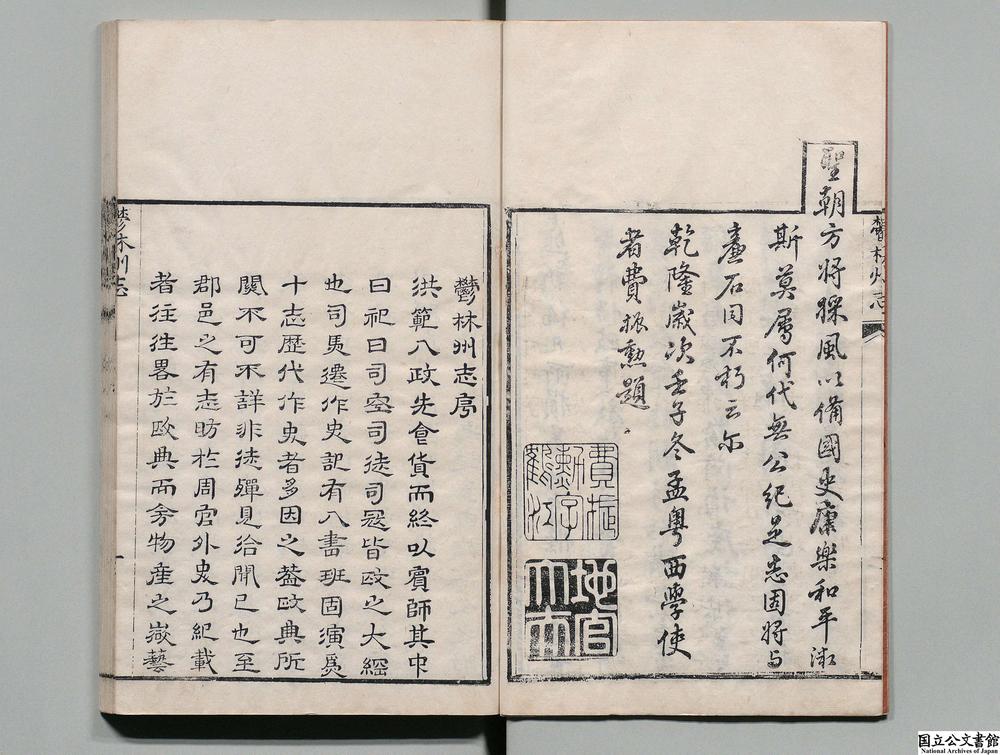 聖朝方將採風以備國史康樂和平潄
斯莫屬何代無公紀是志固將与
廉石同不朽云尔
乾隆歲次壬子冬孟粵西學使
者費振勳題
費振
勳字
鶴江
地官
大夫
鬱林州志
鬱林州志序
洪範八政先食貨而終以賓師其中
曰祀曰司空司徒司寇皆政之大綱
也司馬遷作史記有八書班固演爲
十志歷代作史者多因之蓋政典所
關不可不詳非徒殫見洽聞已也至
郡邑之有志昉於周官外史乃紀載
者往往畧於政典而旁物産之嶽藝
鬱林州志
国立公文書館
National Archives of Japan